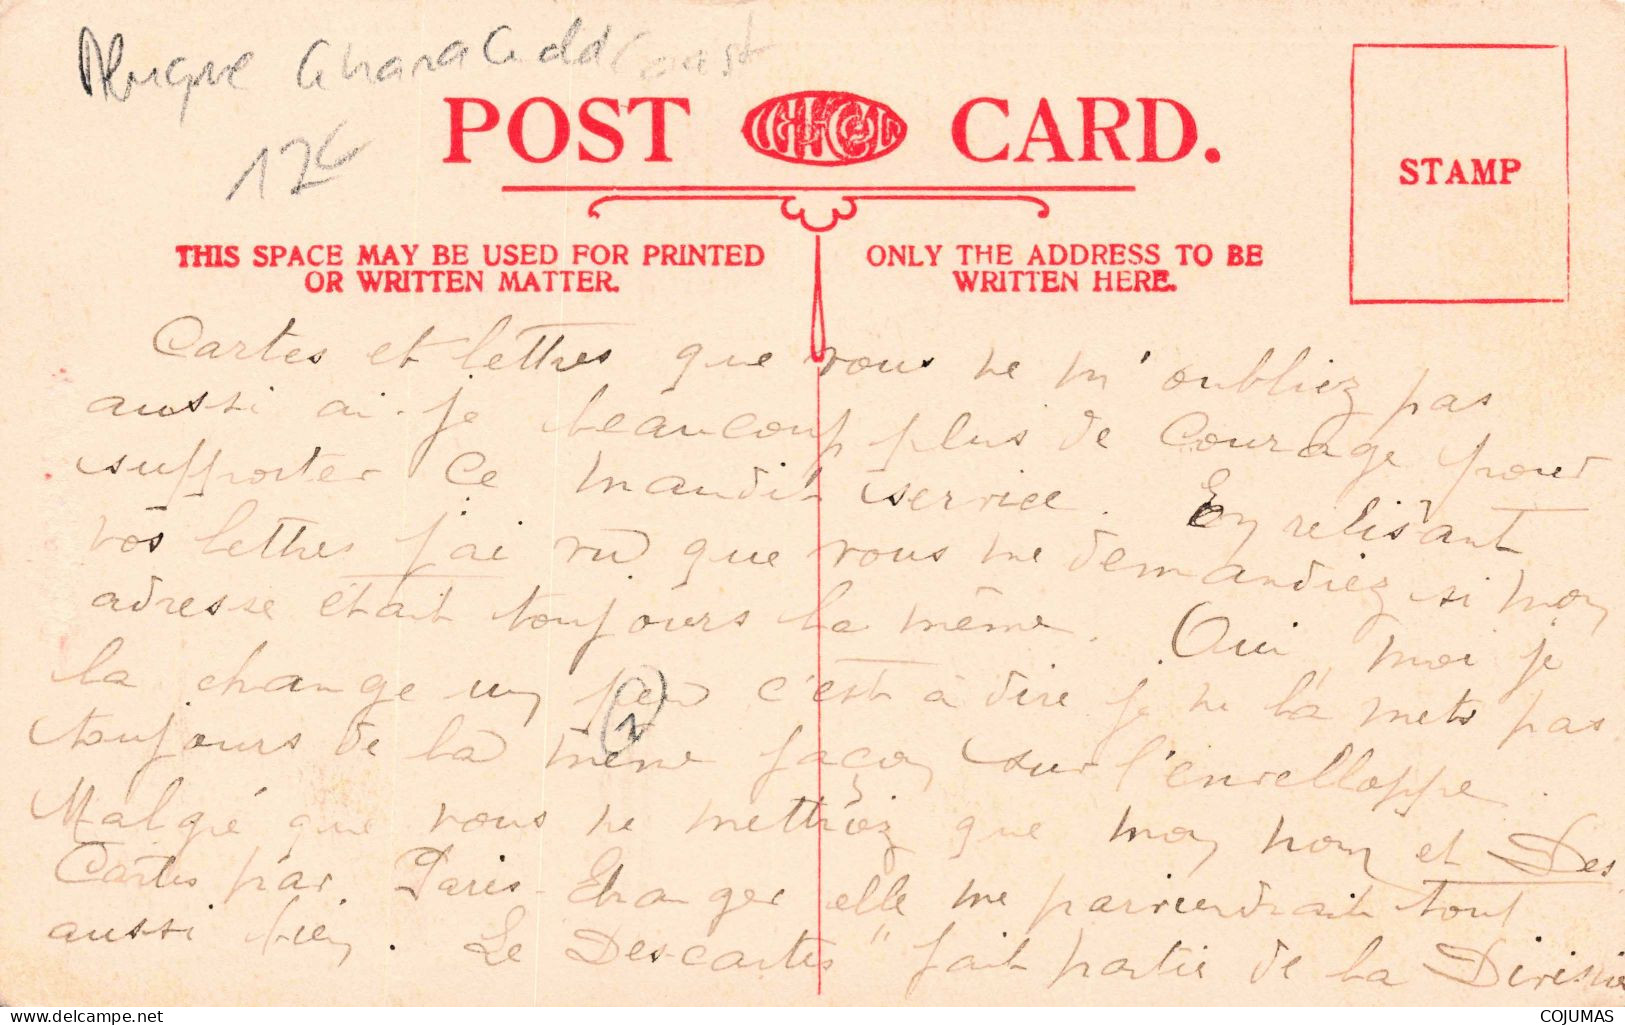 Afrique Ghana Gold Coast
12€
POST CARD.
STAMP
THIS SPACE MAY BE USED FOR PRINTED
OR WRITTEN MATTER.
ONLY THE ADDRESS TO BE
WRITTEN HERE.
Cartes et lettres que vous ne m'oubliez pas
aussi ai-je beaucoup plus de Courage pour
supporter ce maudit service. En relisant
vos lettres j'ai vu que vous me demandiez si mon
adresse était toujours la même. Oui, moi je
la change un peu c'est à dire je ne la mets pas
2
toujours de la même façon sur l'envelloppe.
Malgré que vous ne mettriez que mon nom et Des
Cartes par Paris-Etranger elle me parviendrait tout
aussi bien. Le Descartes" fait partie de la Division
delcampe.net
COJUMAS